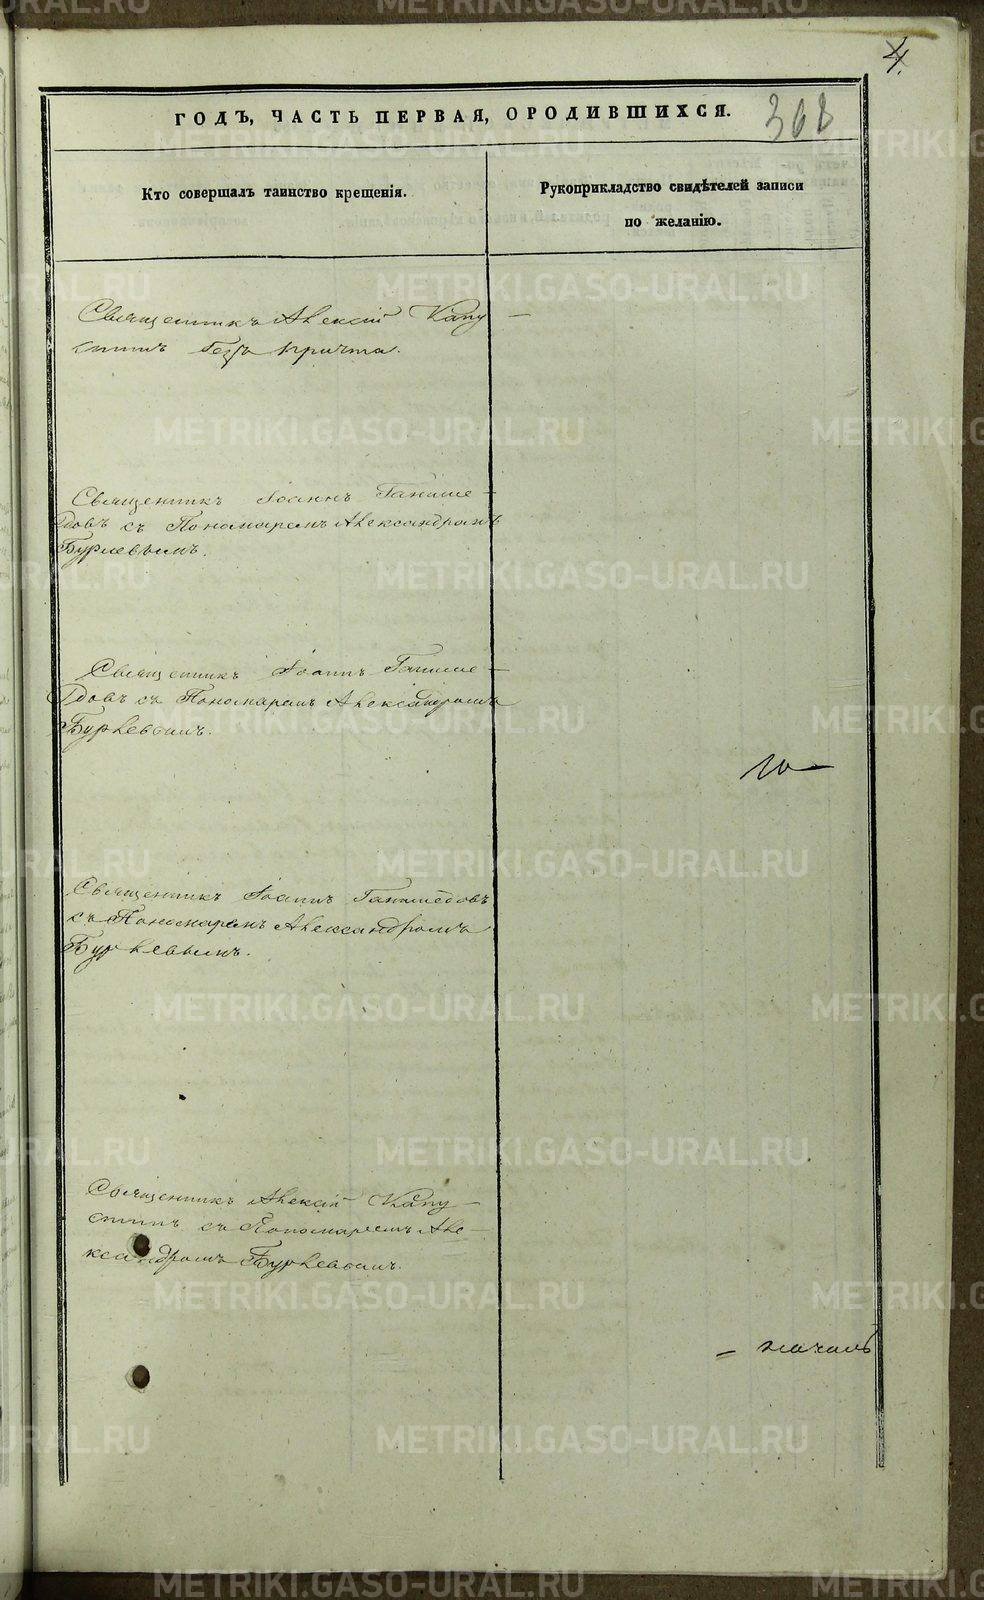 4.
ГОДЪ, ЧАСТЬ ПЕРВАЯ, ОРОДИВШИХСЯ.
368
Кто совершалъ таинство крещенія.
Рукоприкладство свидѣтелей записи
по желанію.
Священникъ Алексій Капу
стинъ безъ причта.
Священникъ Іоаннъ Ганиме-
довъ съ Пономаремъ Александромъ
Бурлевымъ.
Священникъ Іоаннъ Ганиме-
довъ съ Пономаремъ Александромъ
Бурлевымъ.
Священникъ Іоаннъ Ганимедовъ
съ Пономаремъ Александромъ
Бурлевымъ.
Священникъ Алексій Капу-
стинъ съ Пономаремъ Але-
ксандромъ Бурлевымъ.
METRIKI.GASO-URAL.RU